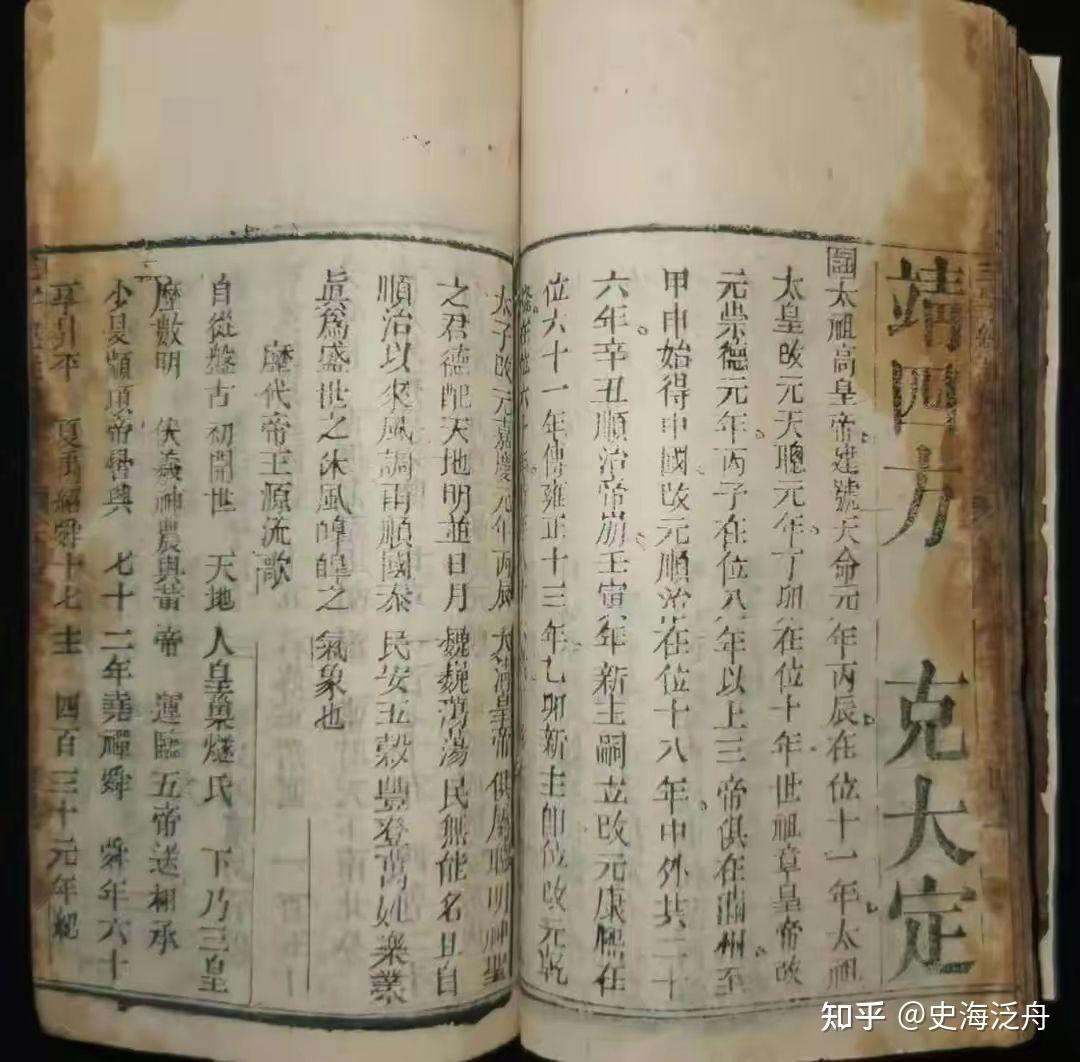 靖四方 克大定
太祖高皇帝。建號天命元年丙辰。在位十一年。太祖
太皇改元天聰元年。丁卯在位十年世祖章皇帝改
元崇德元年。丙子在位八年以上三帝俱在滿州。至
甲申始得中國。改元順治在位十八年。中外共二十
六年。辛丑順治帝崩。壬寅年新主嗣立改元康熙在
位六十一年傳雍正十三年。乙卯新主即位改元乾
太子改元嘉慶元年丙辰大清皇帝俱屬聰明神聖
之君德配天地明並日月巍巍蕩蕩民無能名且自
順治以來風調雨順國泰民安五穀豐登萬姓樂業
眞爲盛世之休風皥皥之氣象也
歷代帝王源流歌
自從盤古初開世 天地人皇巢燧氏 下乃三皇
歷數明 伏羲神農與黃帝 運臨五帝迭相承
少昊顓頊帝嚳與 七十二年堯禪舜 舜年六十
享升平 夏禹紹舜十七主 四百三十元年紀
知乎 @史海泛舟